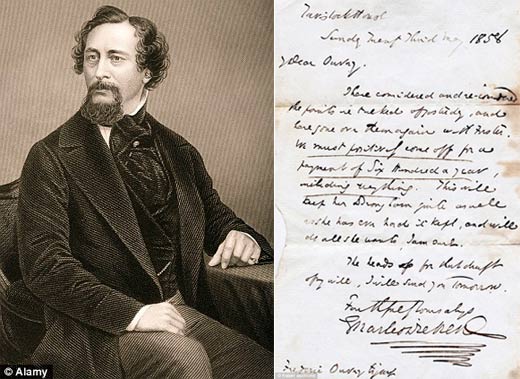 Tavistock House
Sunday Twenty Third May 1858
My Dear Ouvry.
I have considered and re-considered
the points in the deed of yesterday, and
have gone over them again with Forster.
We must positively come off for a
payment of Six Hundred a year,
including everything. This will
keep her quite as well
as she has ever had it kept, and will
do all she wants, I am sure.
The heads for that draft
of my will, I will send you tomorrow.
Faithfully Yours always
Charles Dickens
Frederic Ouvry Esqre
© Alamy